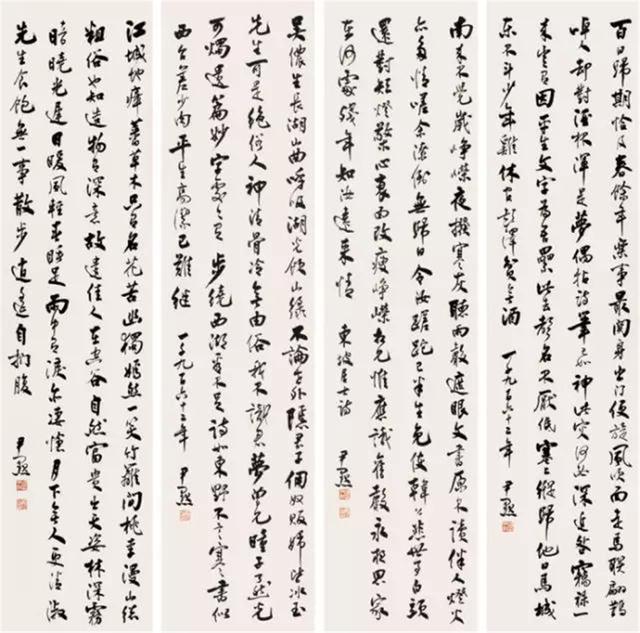 百日歸期恰及春餘年樂事最關身出門便旋風吹面走馬聯翩鵲
啅人卻對酒杯渾是夢偶拈詩筆已如神此災何必深追咎竊祿從
來豈有因平生文字為吾累此去聲名不厭低塞上縱歸他日馬城
東不斗少年雞休官彭澤貧無酒 一千九百六十二年 尹默
南來不覺歲崢嶸夜撥寒灰聽雨聲遮眼文書原不讀伴人燈火
亦多情嗟余潦倒無歸日今汝蹉跎已半生免使韓公悲世事白頭
還對短燈檠心衰面改瘦崢嶸相見惟應識舊聲永夜思家
在何處殘年知汝遠來情 東坡居士詩
吳儂生長湖山曲呼吸湖光飲山綠不論世外隱君子傭奴販婦皆冰玉
先生可是絕俗人神清骨冷無由俗我不識君夢曾見瞳子瞭然光
可燭遺篇妙字處處有步繞西湖看不足詩如東野不言寒書似
西台差少肉平生高潔已難繼 一千九百六十二年 尹默
江城地瘴蕃草木只有名花苦幽獨嫣然一笑竹籬間桃李漫山總
粗俗也知造物有深意故遣佳人在空谷自然富貴出天姿林深霧
暗曉光遲日暖風輕春睡足雨中有淚亦悽愴月下無人更清淑
先生食飽無一事散步逍遙自捫腹 尹默